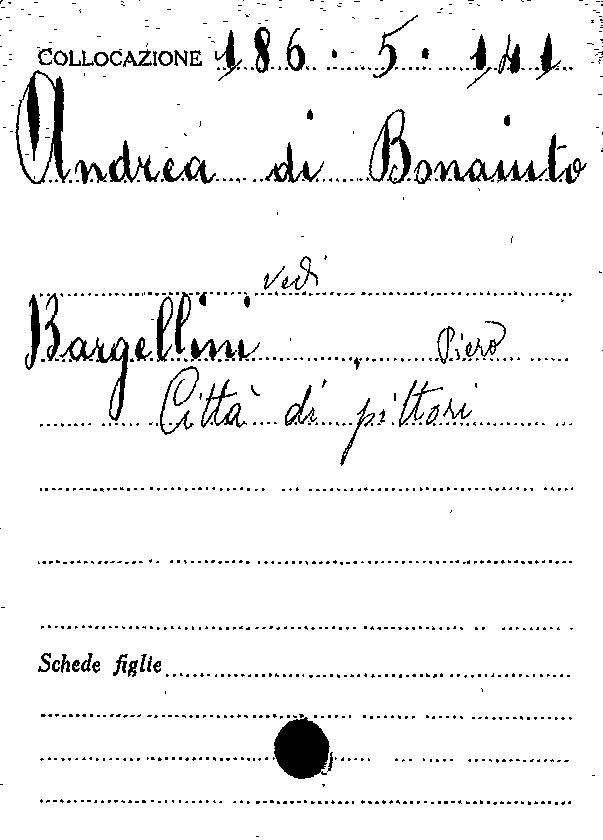 COLLOCAZIONE 186.5.141
Andrea di Bonaiuto
vedi
Bargellini, Piero
Città di pittori
Schede figlie